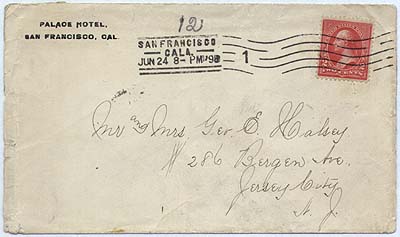 PALACE HOTEL,
SAN FRANCISCO, CAL.
12
SAN FRANCISCO
CALA.
JUN 24 8-PM '98
1
TWO CENTS
Mr and Mrs Geo. E. Halsey
# 286 Bergen Ave.
Jersey City
N. J.